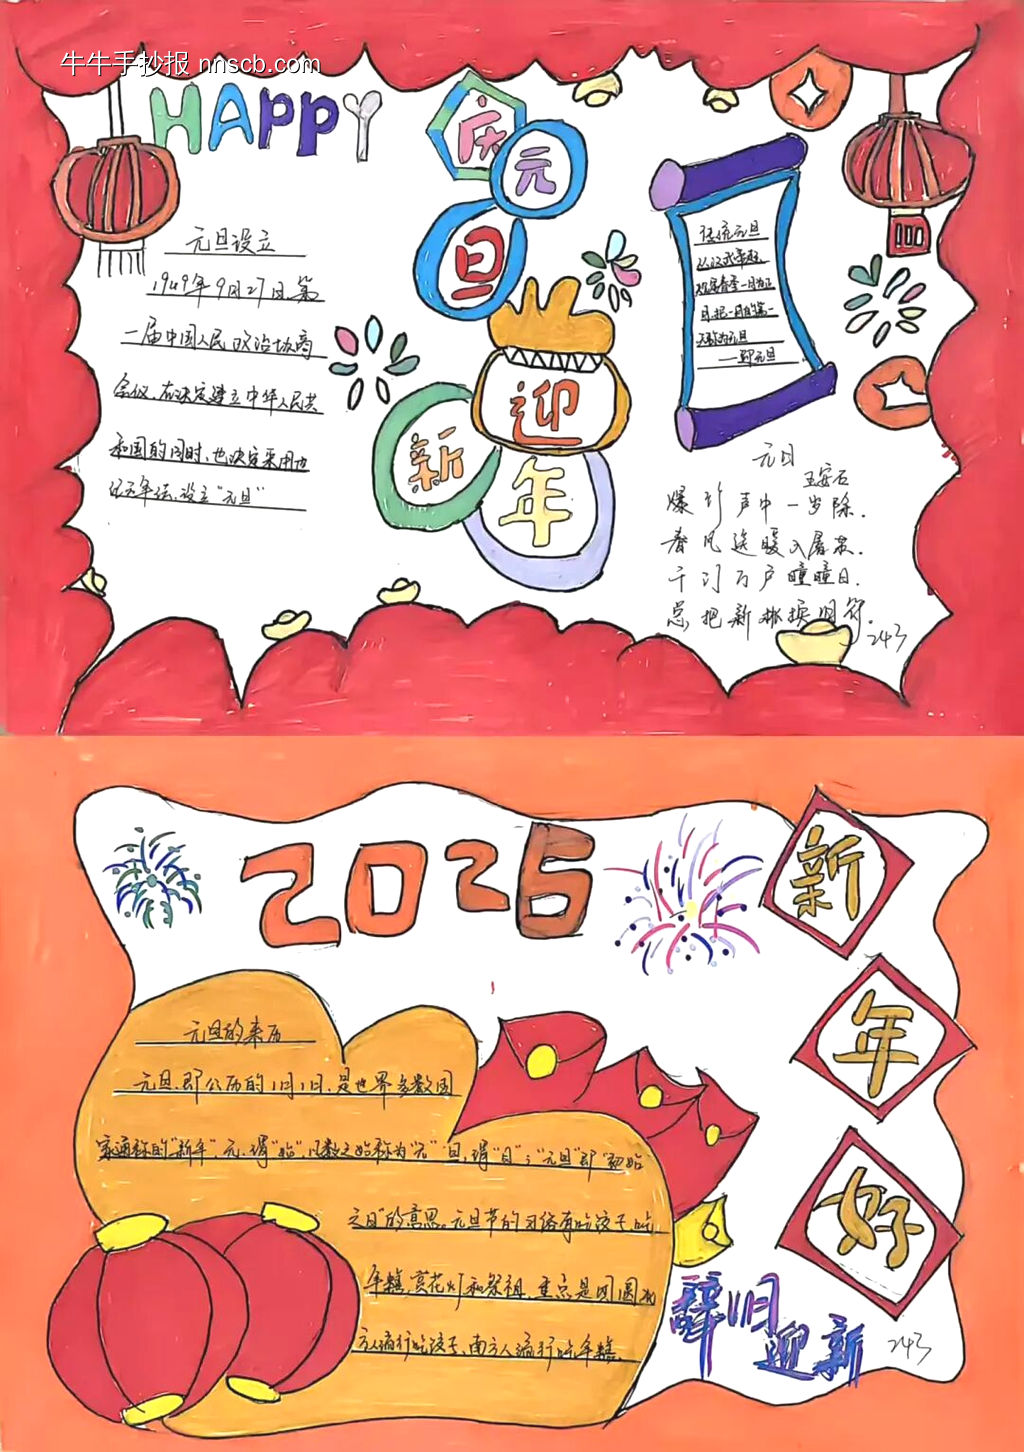 牛牛手抄报 nnscb.com
HAPPY
庆元旦
迎新年
元旦设立
1949年9月27日,第
一届中国人民政治协商
会议,在决定建立中华人民共
和国的同时,也决定采用世
纪元年法,设立"元旦"
传统元旦
从汉武帝起,
规定春季一月为正
月,把一月的第一
天称为元旦
——即元旦
元日
王安石
爆竹声中一岁除.
春风送暖入屠苏.
千门万户曈曈日.
总把新桃换旧符.
243
2026
新年好
元旦的来历
元旦,即公历的1月1日,是世界多数国
家通称的"新年",元,谓"始",凡数之始称为"元" 旦,谓"日";"元旦"即"初始
之日"的意思。元旦节的习俗有吃饺子,吃
年糕,赏花灯和祭祖,重点是团圆,北
方人流行吃饺子,南方人流行吃年糕.
辞旧
迎新
243